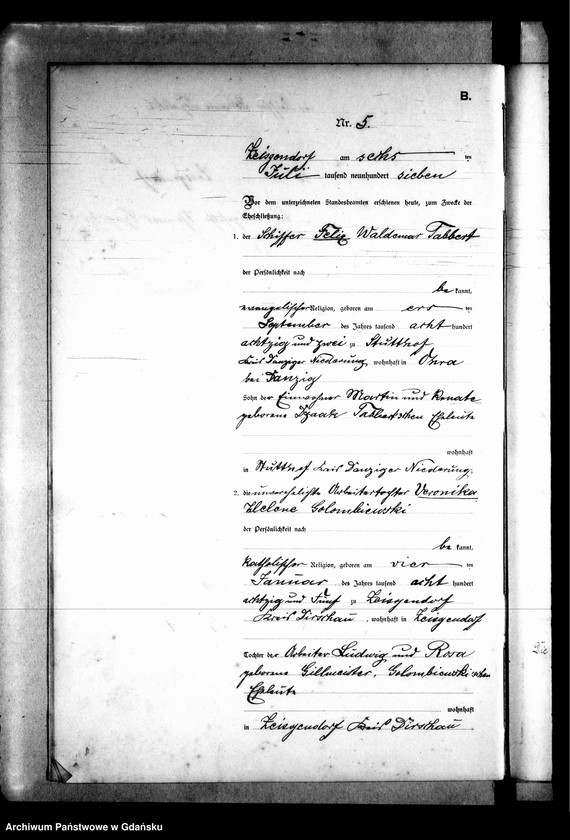 B.
Nr. 5.
Zeisgendorf am sechs ten
Juli tausend neunhundert sieben
Vor dem unterzeichneten Standesbeamten erschienen heute, zum Zwecke der
Eheschließung:
1. der Schiffer Felix Waldemar Tabbert
der Persönlichkeit nach
be kannt,
evangelischer Religion, geboren am ers ten
September des Jahres tausend acht hundert
achtzig und zwei zu Stutthof
Kreis Danziger Niederung, wohnhaft in Ohra
bei Danzig
Sohn der Einwohner Martin und Renate
geborene Tabbert'schen Eheleute
wohnhaft
in Stutthof Kreis Danziger Niederung.
2. die unverehelichte Arbeitertochter Veronika
Helene Golombiewski
der Persönlichkeit nach
be kannt,
katholischer Religion, geboren am vier ten
Januar des Jahres tausend acht hundert
achtzig und fünf zu Zeisgendorf
Kreis Dirschau, wohnhaft in Zeisgendorf
Tochter der Arbeiter Ludwig und Rosa
geborene Gillmeister, Golombiewski'schen
Eheleute
wohnhaft
in Zeisgendorf Kreis Dirschau
Archiwum Państwowe w Gdańsku